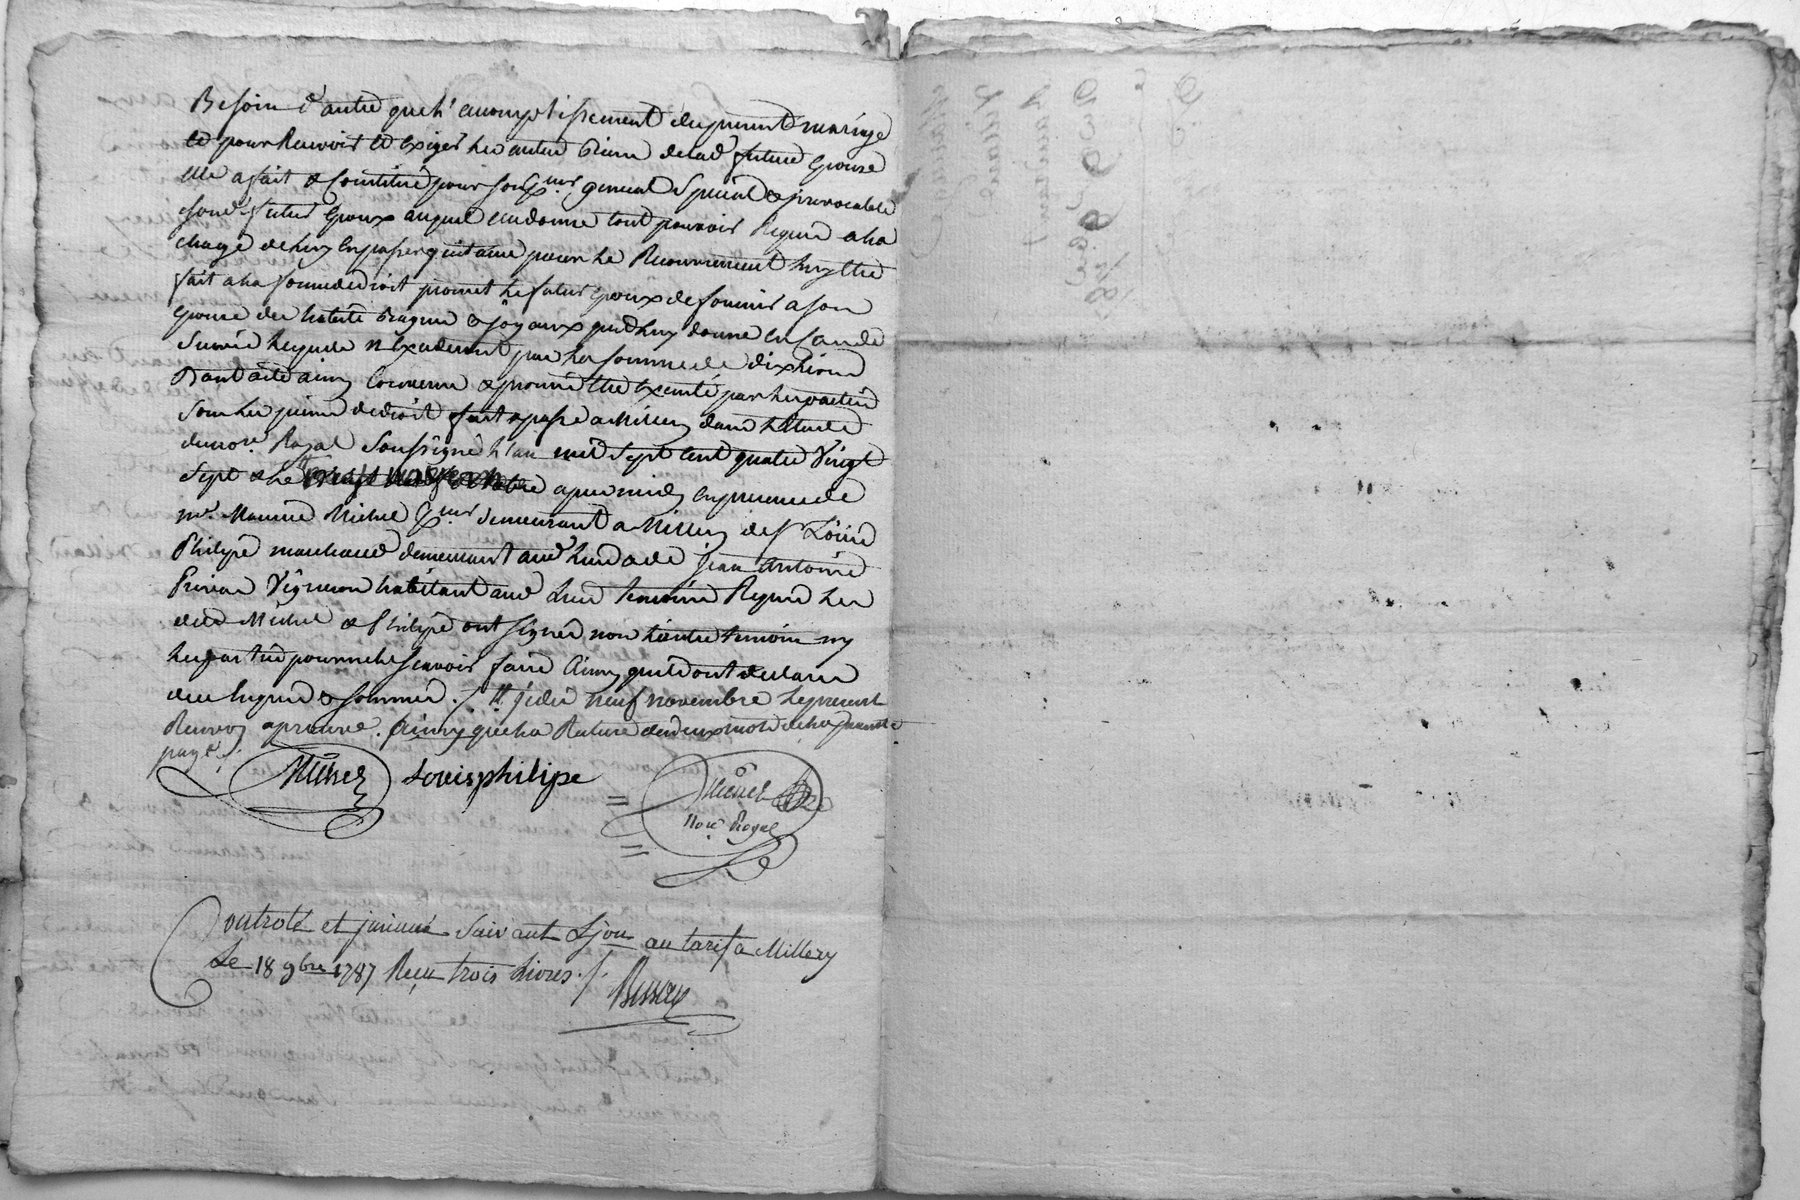 Besoin d'autre que l'accomplissement du present mariage
et pour Recevoir et Exiger les autres biens de lad. future Epouse
elle a fait & Constitué pour son pr.eur general Special & irrevocable
sond. futur Epoux auquel elle donne tout pouvoir Requis a la
charge de luy En passer quittance pour le Recouvrement luy Etre
fait a la forme de droit promet le futur Epoux de fournir a son
Epouse des habits bagues & joyaux quil luy donne En cas de
Survie lesquels n'Excederont pas la somme de dix livres
Dont acte ainsy Convenu & promis Etre Executé par les parties
Sous les peines de droit fait & passé a Millery dans l'Etude
du no.re Royal Soussigné l'an mil sept cent quatre Vingt
Sept & le apres midy En presence de
m.e Maurice Michel pr.eur demeurant a Millery de s.r Loüis
Philipe marchand demeurant aud. lieu & de jean Antoine
Vigneron habitant aud. lieu temoins Requis les
dits Michel & Philipe ont signés non l'autre temoin ny
les parties pour ne le scavoir faire Ainsy quils ont declaré
de ce Enquis & sommés ./. # jedis neuf novembre le present
Renvoy aprouvé. Ainsy que la Rature de deux mots de la presente
page ./.
Michel Louis philipe
Nore Royal
Controlé et jnsinué Suivant Ljon au tarif a Millery
Le 18 9bre 1787 Reçu trois Livres ./.